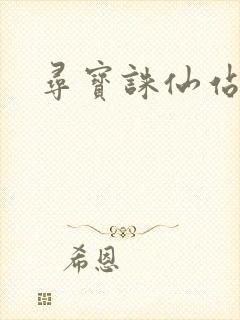 尋寶誅仙佔
希恩